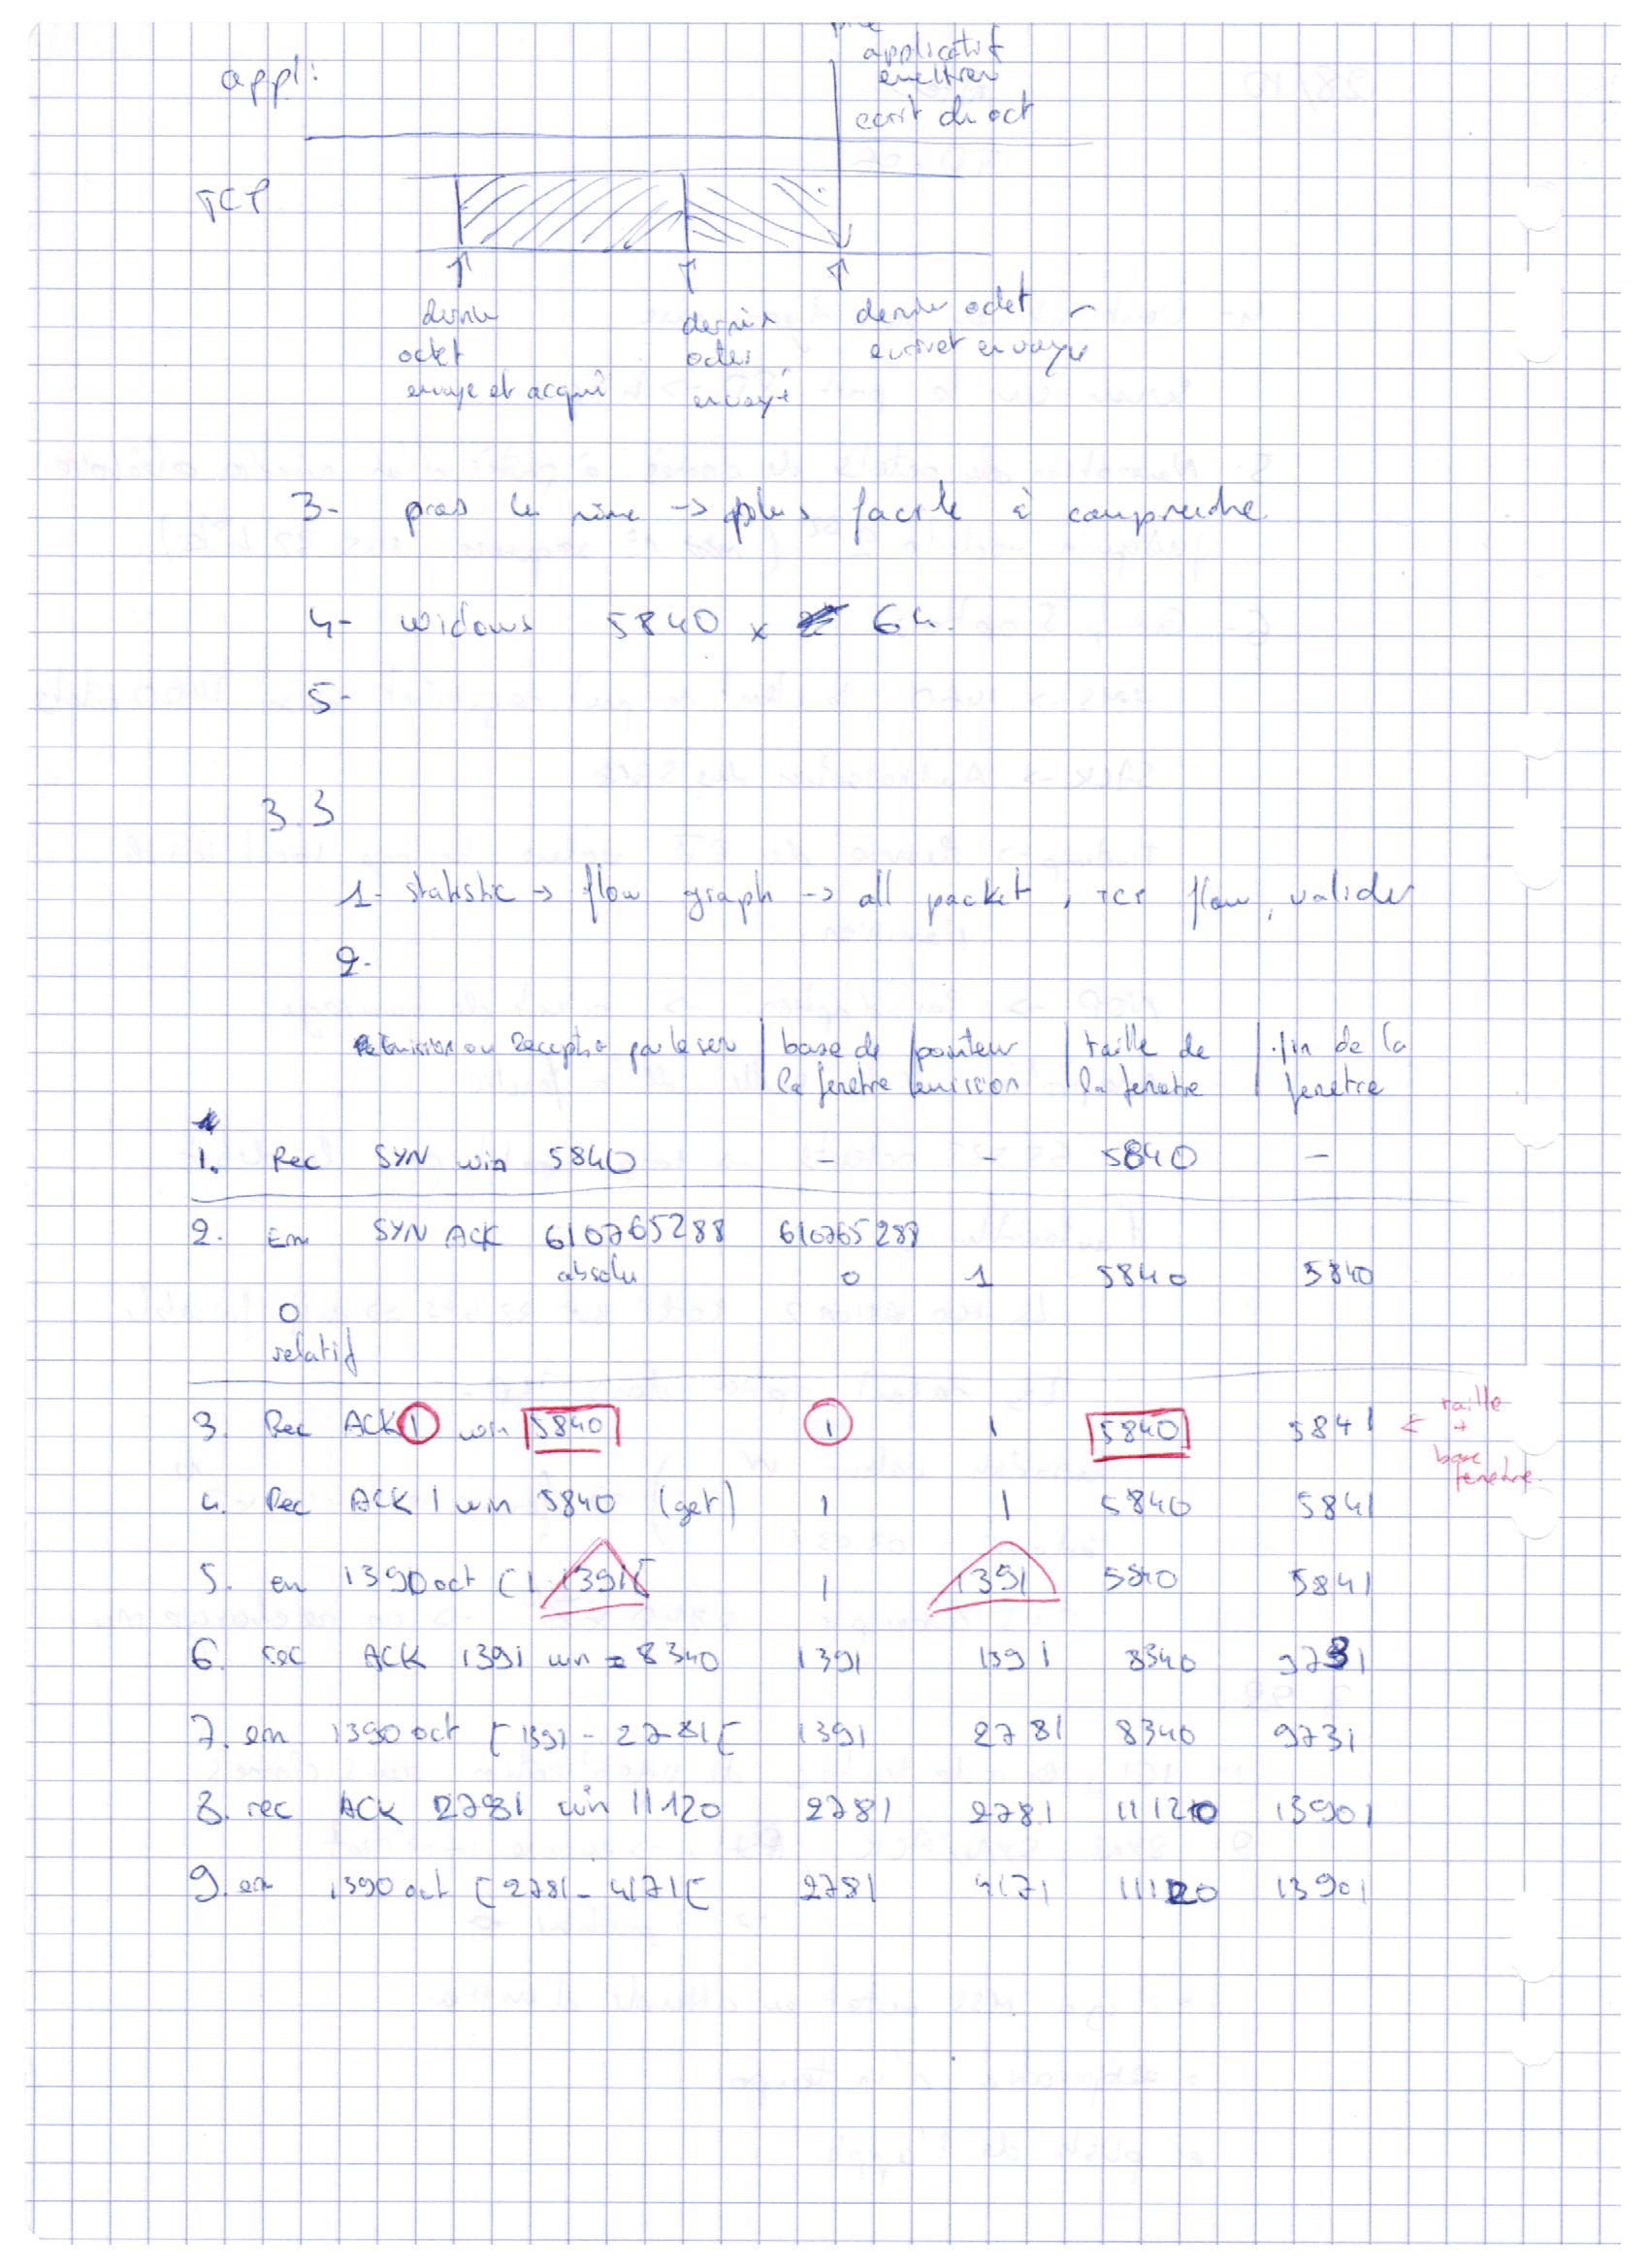 applicatif
appl:
ecrit du oct
TCP
dernier octet
octet
envoye et acquí
envoyé
3- pas le même -> plus facile à comprendre
4- widows 5840 x 64.
5-
3.3
1- statistic -> flow graph -> all packet, TCP flow, valider
2-
Emission ou Reception par le ser | base de la fenetre | pointeur emission | taille de la fenetre | fin de la fenetre
1. Rec SYN win 5840 - - 5840 -
2. Em SYN ACK 610765288 610765288
absolu 0 1 5840 5840
0
relatif
3. Rec ACK 1 win 5840 1 1 5840 5841 <- taille + base fenetre.
4. Rec ACK 1 win 5840 (get) 1 1 5840 5841
5. em 1390 oct [1-1391[ 1 1391 5840 5841
6. rec ACK 1391 win = 8340 1391 1391 8340 9731
7. em 1390 oct [1391 - 2781[ 1391 2781 8340 9731
8. rec ACK 2781 win 11120 2781 2781 11120 13901
9. em 1390 oct [2781 - 4171[ 2781 4171 11120 13901